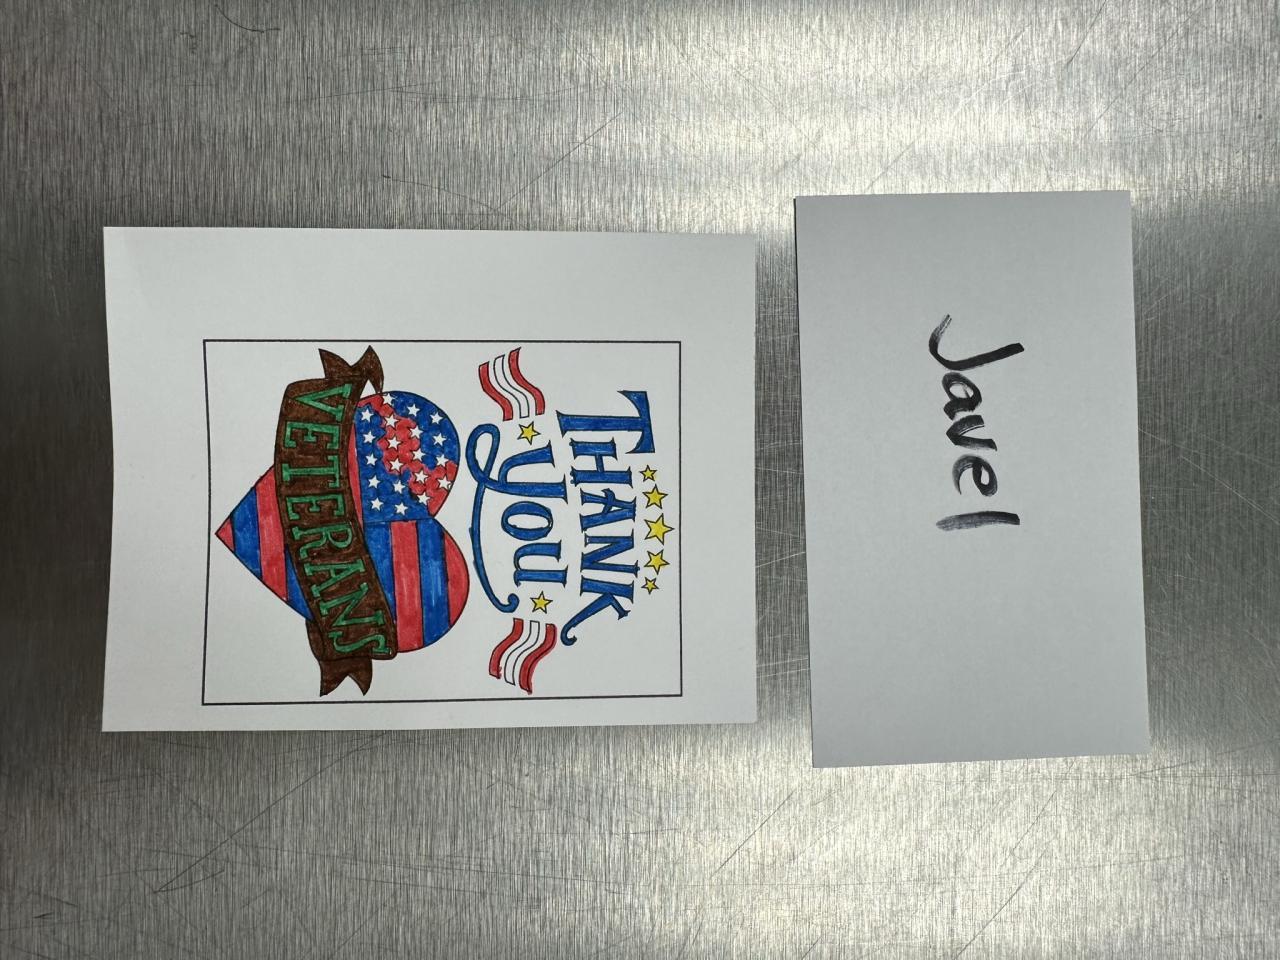 Javel
THANK
You
VETERANS